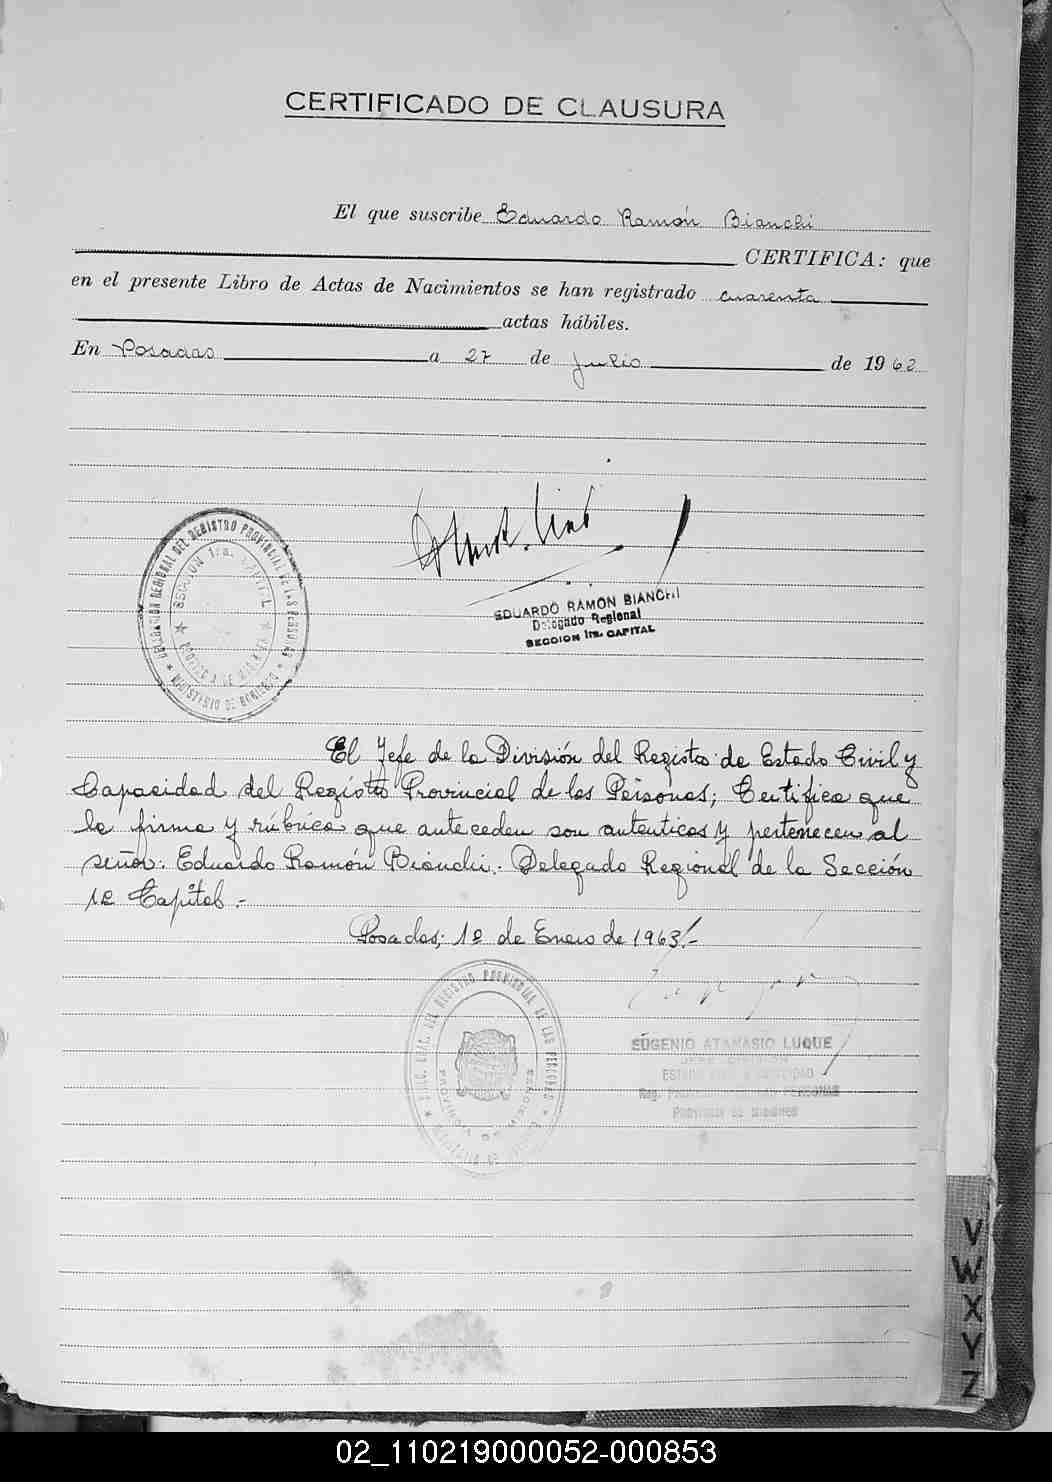 CERTIFICADO DE CLAUSURA
El que suscribe Eduardo Ramón Bianchi
CERTIFICA: que
en el presente Libro de Actas de Nacimientos se han registrado cuarenta
actas hábiles.
En Posadas a 27 de Julio de 1962
DELEGACION REGIONAL DEL REGISTRO PROVINCIAL DE LAS PERSONAS
SECCION 1ra. CAPITAL
MINISTERIO DE GOBIERNO
EDUARDO RAMON BIANCHI
Delegado Regional
SECCION 1ra. CAPITAL
El Jefe de la División del Registro de Estado Civil y
Capacidad del Registro Provincial de las Personas; Certifica que
la firma y rúbrica que anteceden son autenticas y pertenecen al
señor: Eduardo Ramón Bianchi.- Delegado Regional de la Sección
1ª Capital.-
Posadas; 1º de Enero de 1963.-
DEL REGISTRO PROVINCIAL DE LAS PERSONAS
PROVINCIA DE MISIONES
EUGENIO ATANASIO LUQUE
PROVINCIA DE MISIONES
V
W
X
Y
Z
02_110219000052-000853